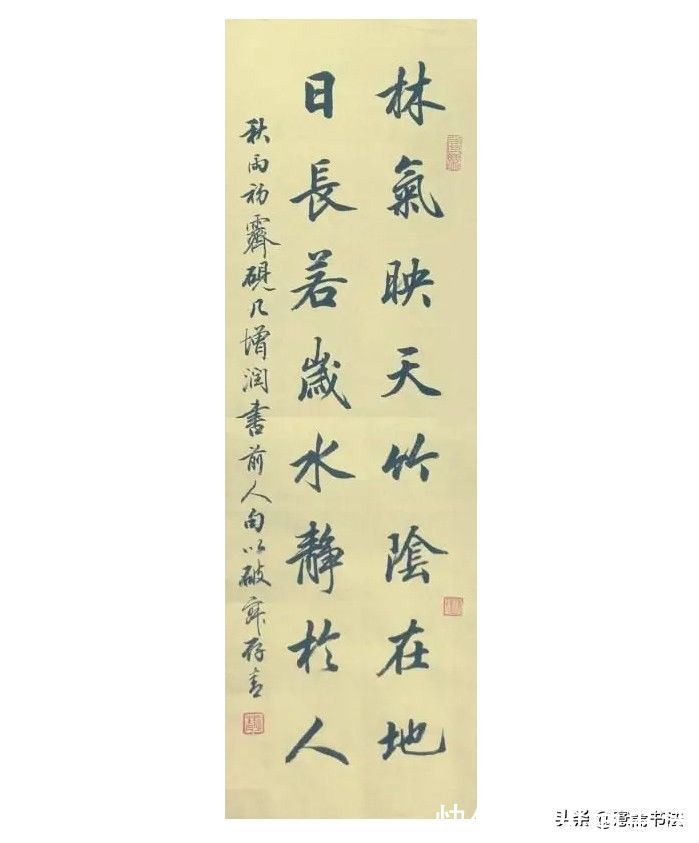 林氣映天竹陰在地
日長若歲水靜於人
秋雨初霽硯几增潤書前人句以破寂存青
头条 @ 书法